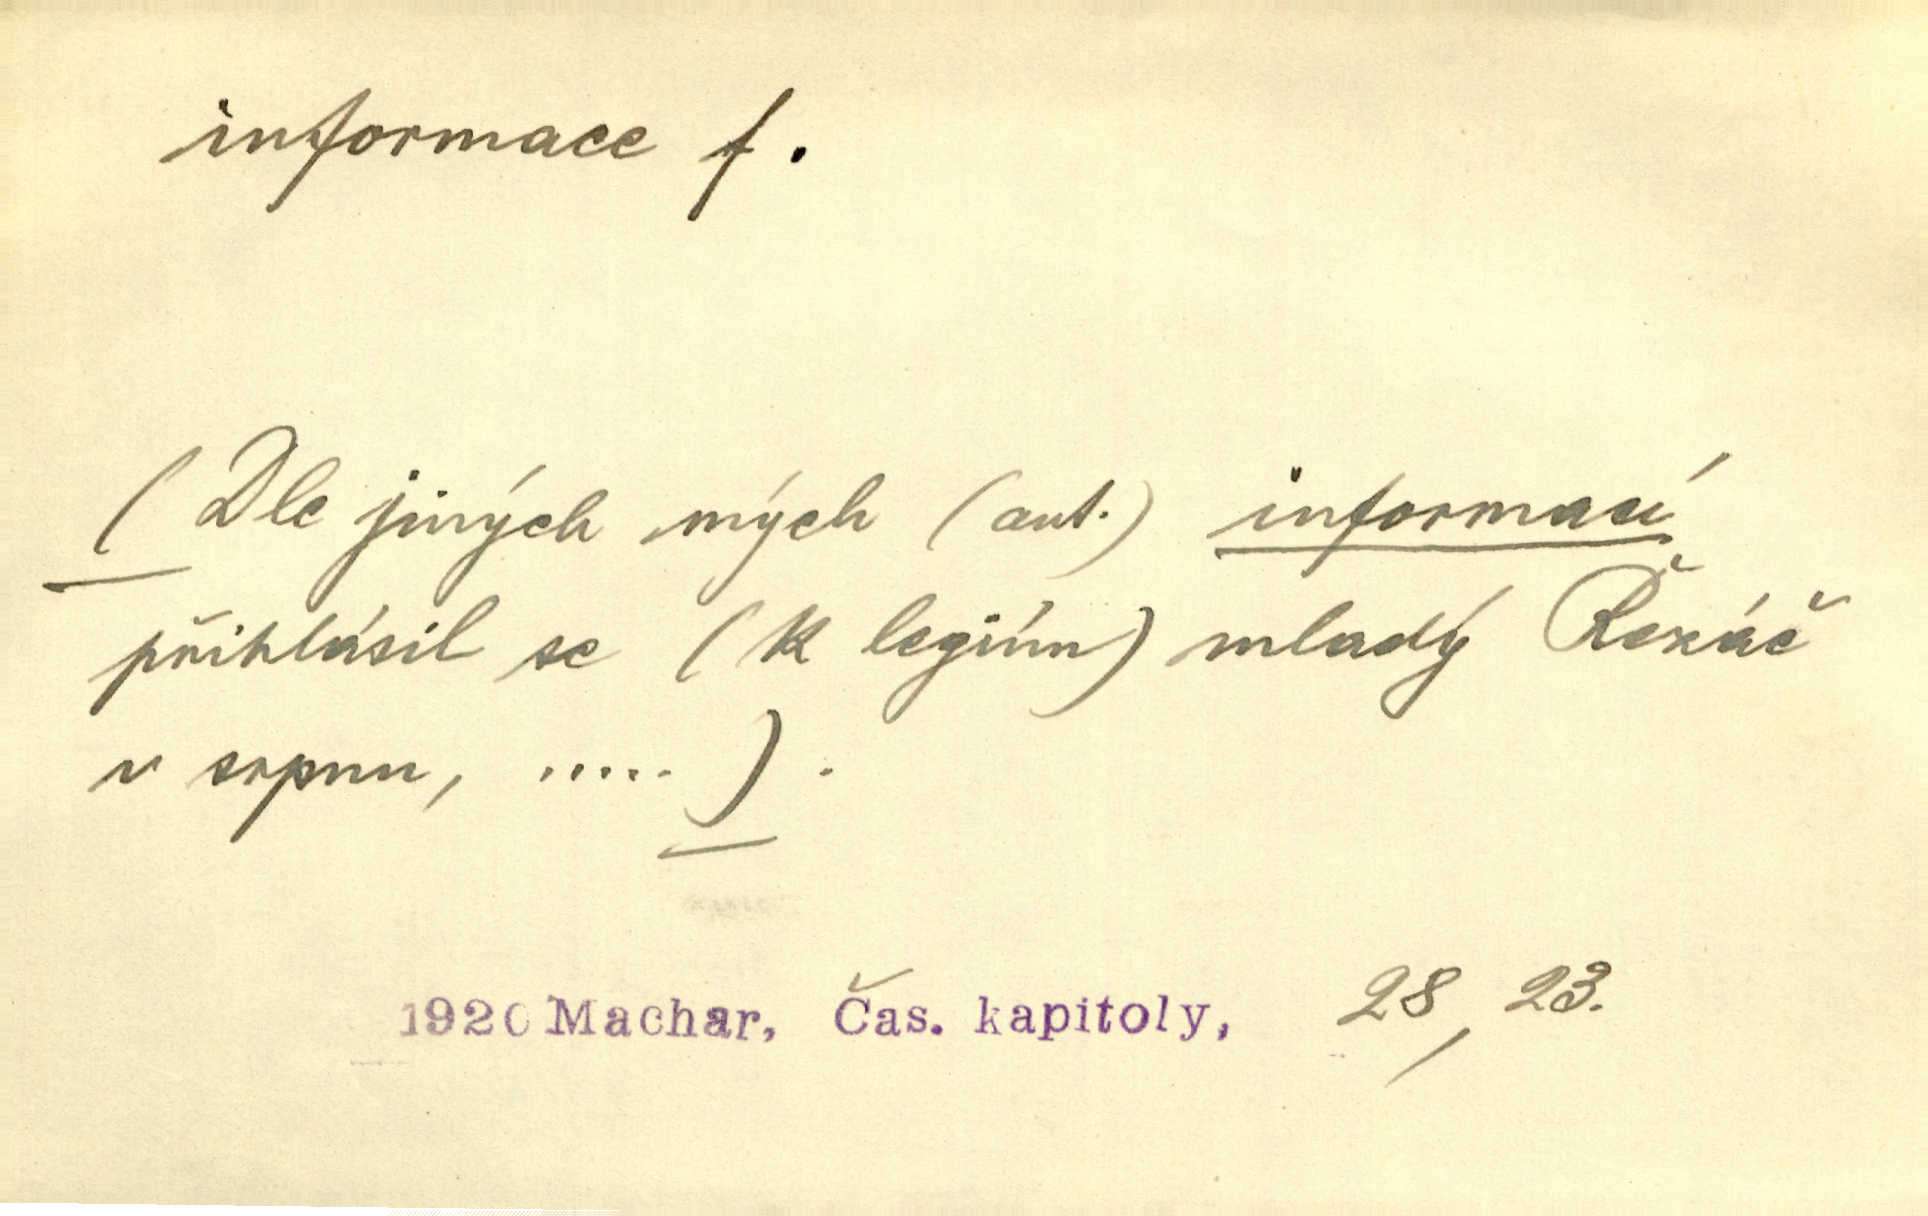 informace f.
( Dle jiných mých (aut.) informací
přihlásil se (k legiím) mladý Řezáč
v srpnu, ..... ) .
1920 Machar, Čas. kapitoly, 28, 23.